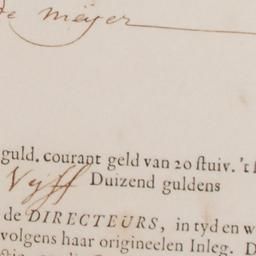 de meyer
guld. courant geld van 20 ſtuiv. 't
Vyff Duizend guldens
de DIRECTEURS, in tyd en w
volgens haar origineelen Inleg. D